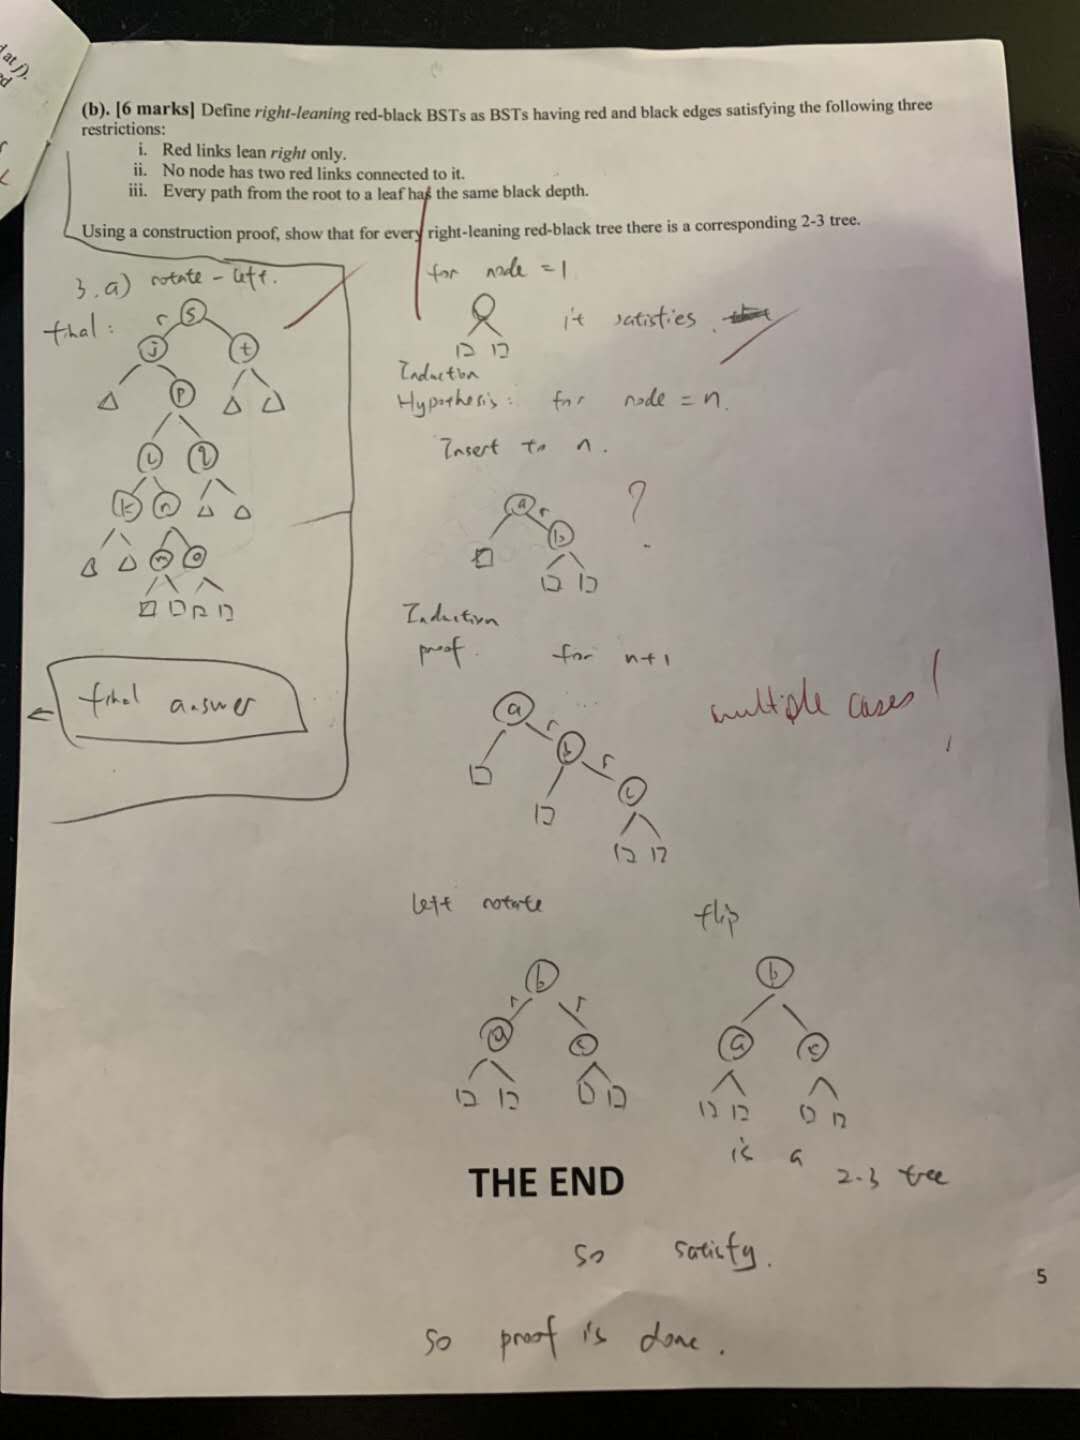 at j).
(b). [6 marks] Define right-leaning red-black BSTs as BSTs having red and black edges satisfying the following three
restrictions:
i. Red links lean right only.
ii. No node has two red links connected to it.
iii. Every path from the root to a leaf has the same black depth.
Using a construction proof, show that for every right-leaning red-black tree there is a corresponding 2-3 tree.
3.a) rotate-left.
final:
r
s
j
t
p
l
q
k
n
m
o
final answer
for node = 1
it satisfies.
Induction
Hypothesis: for node = n.
Insert to n.
a
r
b
?
Induction
proof. for n+1
a
r
b
r
c
multiple cases!
left rotate
flip
b
r
r
a
c
b
a
c
is a
2-3 tree
THE END
so satisfy.
5
so proof is done.